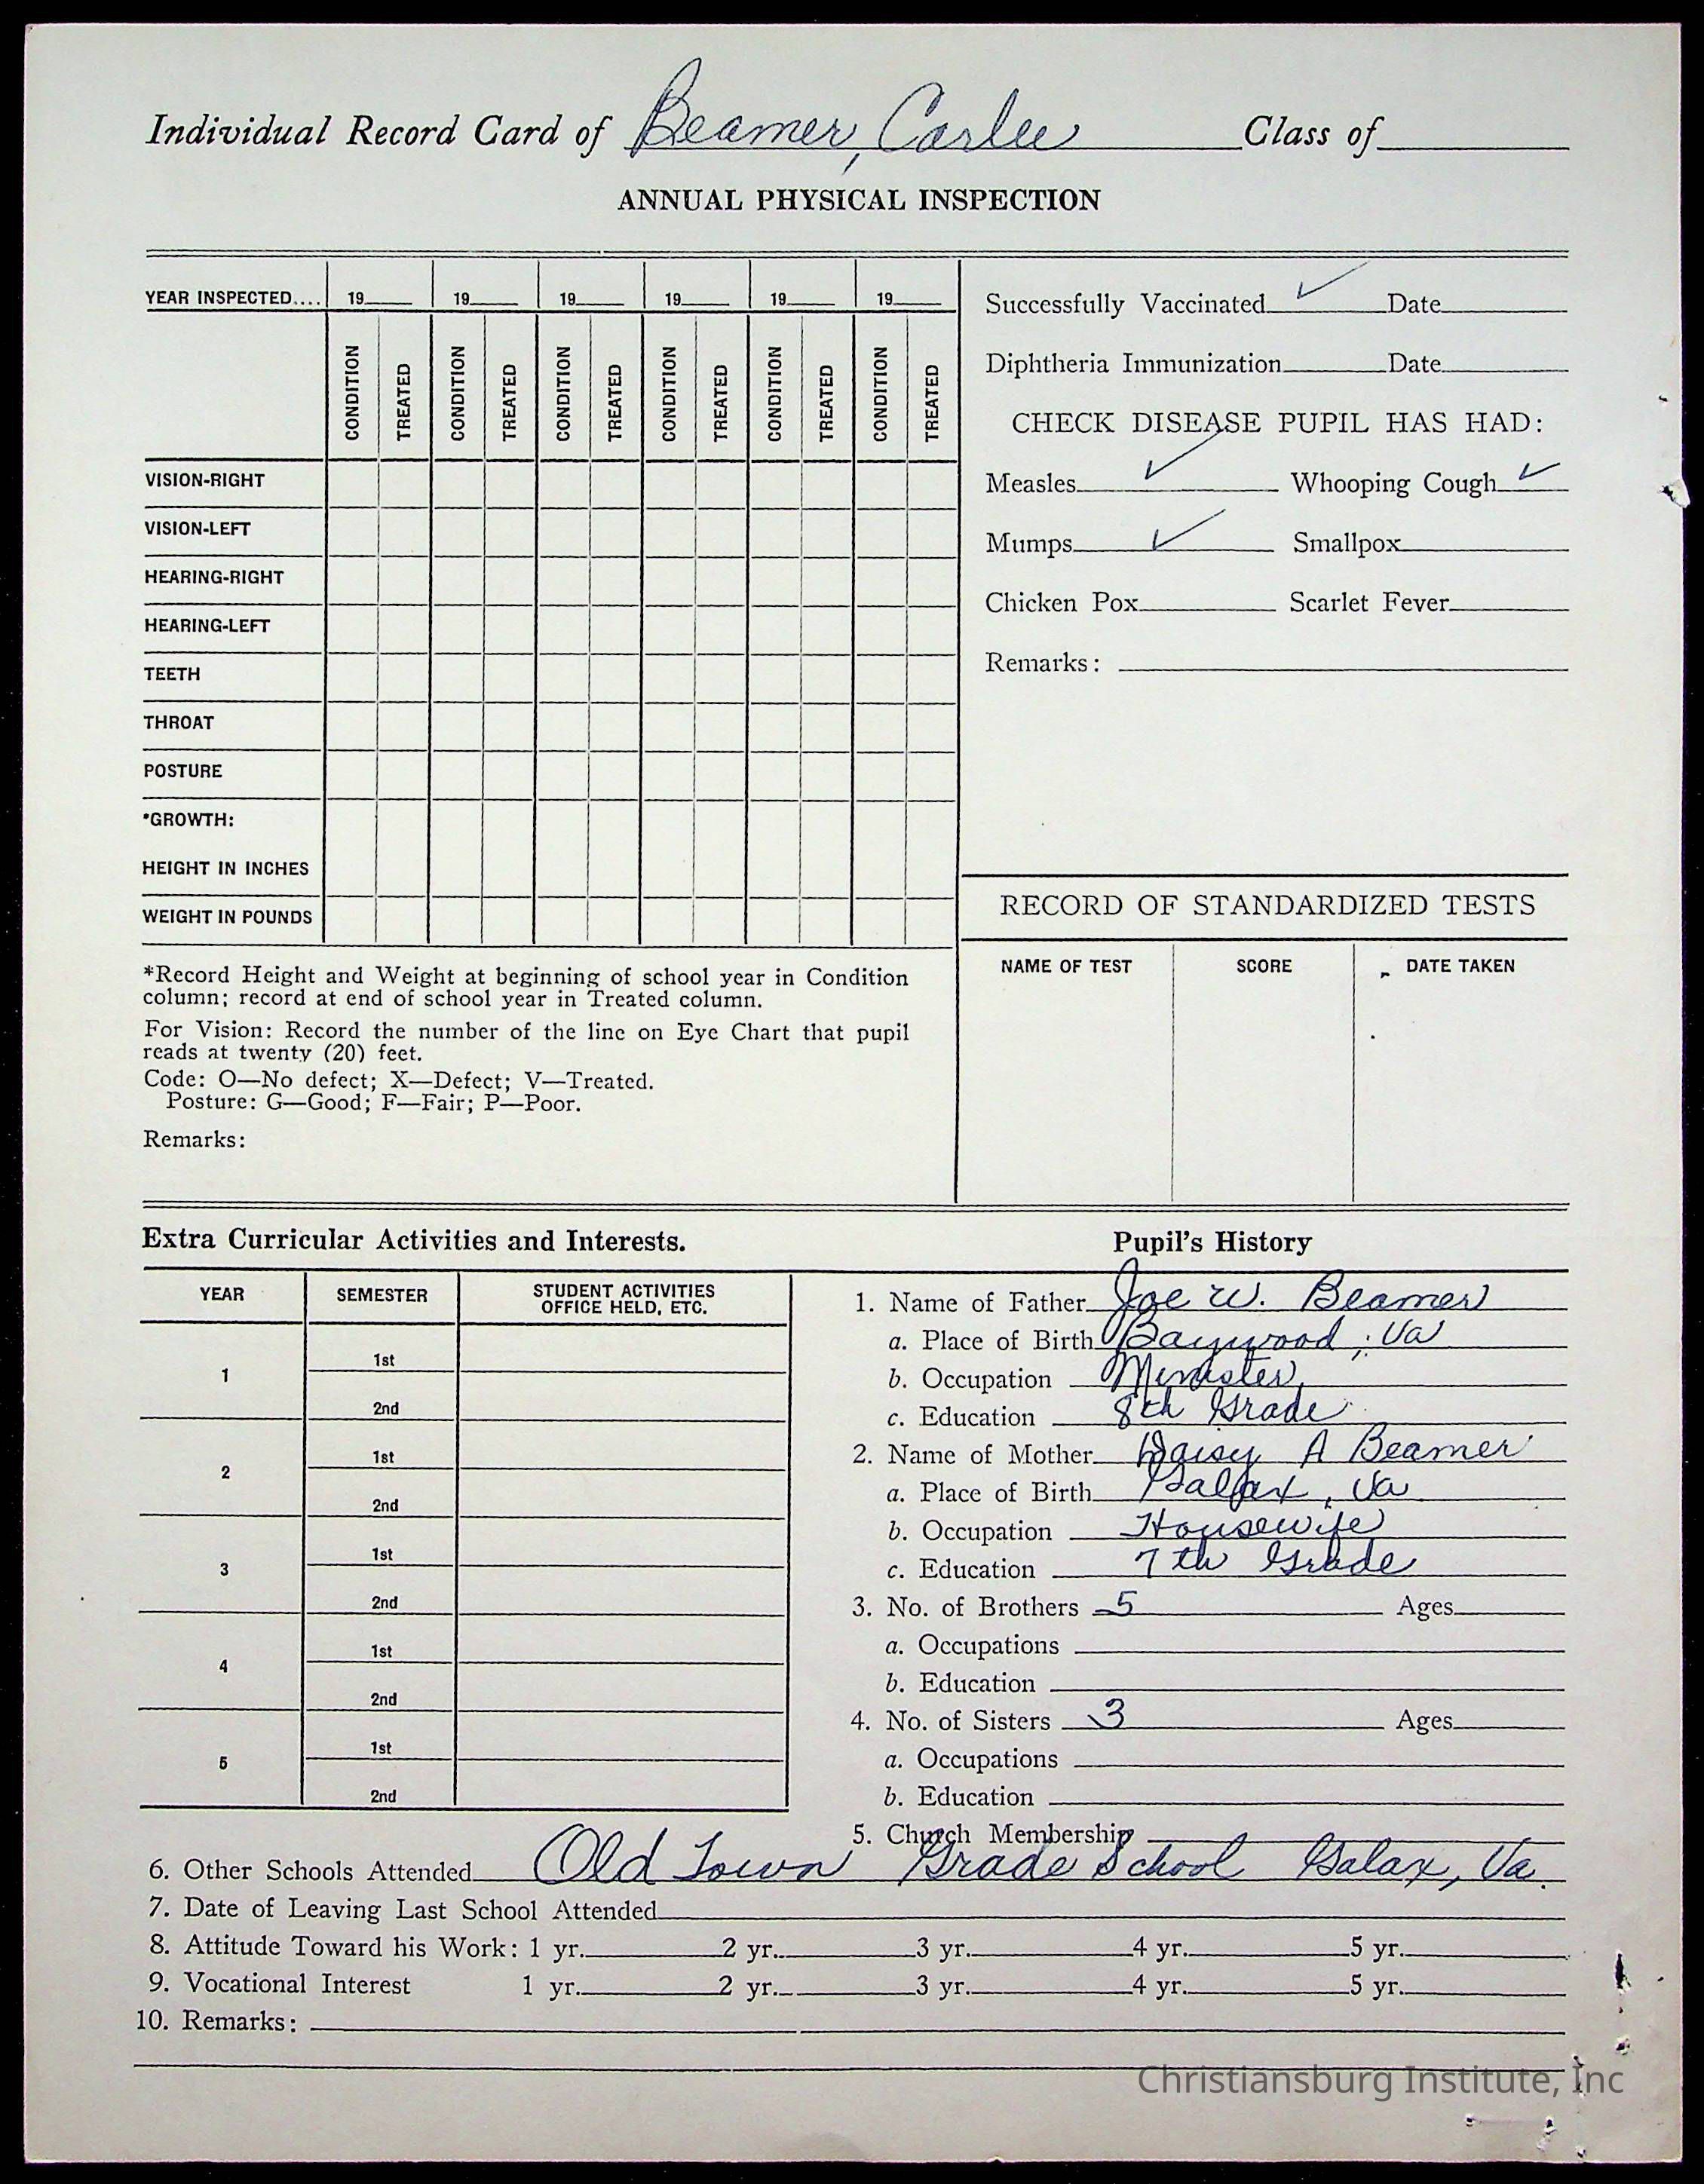 Individual Record Card of Beamer, Carlee Class of
ANNUAL PHYSICAL INSPECTION
YEAR INSPECTED.... 19 19 19 19 19 19
CONDITION TREATED CONDITION TREATED CONDITION TREATED CONDITION TREATED CONDITION TREATED CONDITION TREATED
VISION-RIGHT
VISION-LEFT
HEARING-RIGHT
HEARING-LEFT
TEETH
THROAT
POSTURE
*GROWTH:
HEIGHT IN INCHES
WEIGHT IN POUNDS
*Record Height and Weight at beginning of school year in Condition
column; record at end of school year in Treated column.
For Vision: Record the number of the line on Eye Chart that pupil
reads at twenty (20) feet.
Code: O—No defect; X—Defect; V—Treated.
Posture: G—Good; F—Fair; P—Poor.
Remarks:
Successfully Vaccinated ✓ Date
Diphtheria Immunization Date
CHECK DISEASE PUPIL HAS HAD:
Measles ✓ Whooping Cough ✓
Mumps ✓ Smallpox
Chicken Pox Scarlet Fever
Remarks:
RECORD OF STANDARDIZED TESTS
NAME OF TEST SCORE DATE TAKEN
Extra Curricular Activities and Interests.
YEAR SEMESTER STUDENT ACTIVITIES
OFFICE HELD, ETC.
1 1st
2nd
2 1st
2nd
3 1st
2nd
4 1st
2nd
5 1st
2nd
Pupil's History
1. Name of Father Joe W. Beamer
a. Place of Birth Baywood, Va
b. Occupation Minister
c. Education 8th Grade
2. Name of Mother Daisy A Beamer
a. Place of Birth Galax, Va
b. Occupation Housewife
c. Education 7th Grade
3. No. of Brothers 5 Ages
a. Occupations
b. Education
4. No. of Sisters 3 Ages
a. Occupations
b. Education
5. Church Membership
6. Other Schools Attended Old Town Grade School Galax, Va.
7. Date of Leaving Last School Attended
8. Attitude Toward his Work: 1 yr. 2 yr. 3 yr. 4 yr. 5 yr.
9. Vocational Interest 1 yr. 2 yr. 3 yr. 4 yr. 5 yr.
10. Remarks:
Christiansburg Institute, Inc